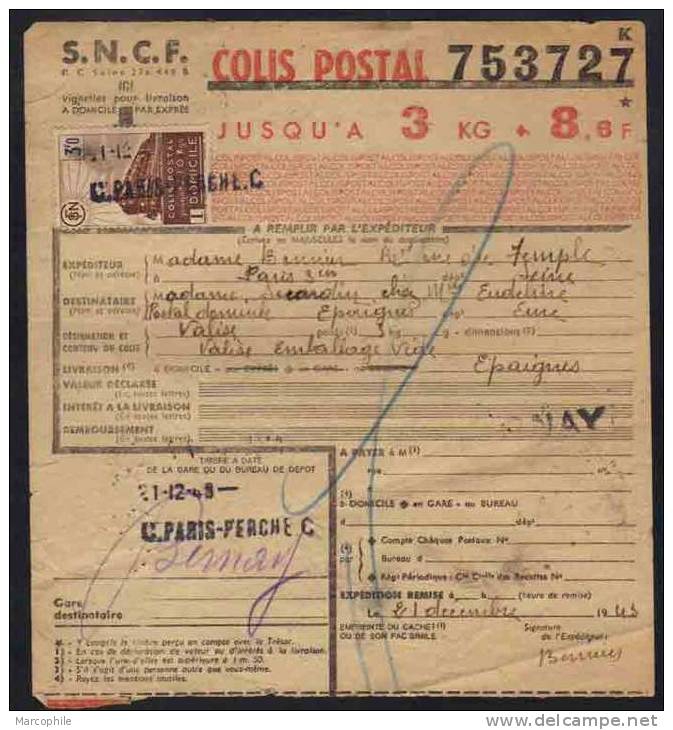 K
S.N.C.F. COLIS POSTAL 753727
R. C. Seine 276 448 B
ICI
Vignettes pour livraison
A DOMICILE PAR EXPRÈS
JUSQU'A 3 KG 8,6 F
21-12
COLIS POSTAL
DOMICILE
C.PARIS-PERCHE.C
A REMPLIR PAR L'EXPÉDITEUR
(Écrire en MAJUSCULES le nom du destinataire)
EXPÉDITEUR Madame Bernier rue du Temple
(Nom et adresse) à Paris 3em dépt Seine
DESTINATAIRE Madame chez Mme
(Nom et adresse) Epaignes Eure
DÉSIGNATION ET Valise poids (2) 3 kg g - dimensions (3)
CONTENU DU COLIS Valise Emballage Vide
LIVRAISON (4) à DOMICILE ou EXPRÈS ou GARE Epaignes
VALEUR DÉCLARÉE
(En toutes lettres)
INTÉRÊT A LA LIVRAISON
(En toutes lettres)
REMBOURSEMENT
(En toutes lettres)
NAY
TIMBRE A DATE
DE LA GARE OU DU BUREAU DE DÉPOT
A PAYER A M (1)
rue
21-12-43
C.PARIS-PERCHE C
Bernay
(4)
à DOMICILE ou en GARE ou BUREAU
d dépt
(4) par
Compte Chèques Postaux No
Bureau d
Régl Périodique : Cte Cville des Recettes No
Gare
destinataire
EXPÉDITION REMISE A h (heure de remise)
Le 21 décembre 1943
EMPREINTE DU CACHET (1)
OU DE SON FAC SIMILE
Signature
de l'Expéditeur
* - Y compris le timbre perçu en compte avec le Trésor.
1) - En cas de déclaration de valeur ou d'intérêt à la livraison.
2) - Lorsque l'une d'elles est supérieure à 1 m. 50.
3) - S'il s'agit d'une personne autre que vous-même.
4) - Rayez les mentions inutiles.
Marcophile
www.delcampe.net